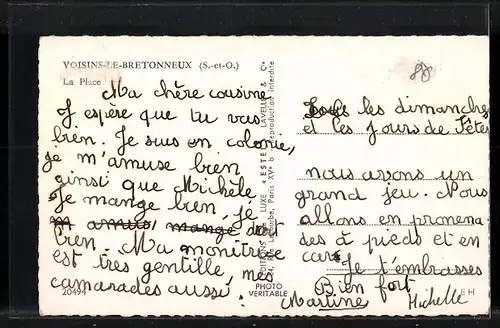 VOISINS-LE-BRETONNEUX (S.-et-O.)
La Place
Ma chère cousine
J espère que tu vas
bien. Je suis en colonie,
je m'amuse bien
ainsi que Michèle
Je mange bien, je
m amus, mange dort
bien. Ma monitrice
est très gentille, mes
camarades aussi.
20494
PHOTO
VERITABLE
ÉDITIONS DE LUXE « ESTEL » LAVELLE & Cie
Paris XVe Reproduction interdite
88
Tous les dimanches
et les jours de Fêtes
nous avons un
grand jeu. Nous
allons en promena
des à pieds et en
car. Je t'embrasses
Bien fort
Martine Michelle
EH